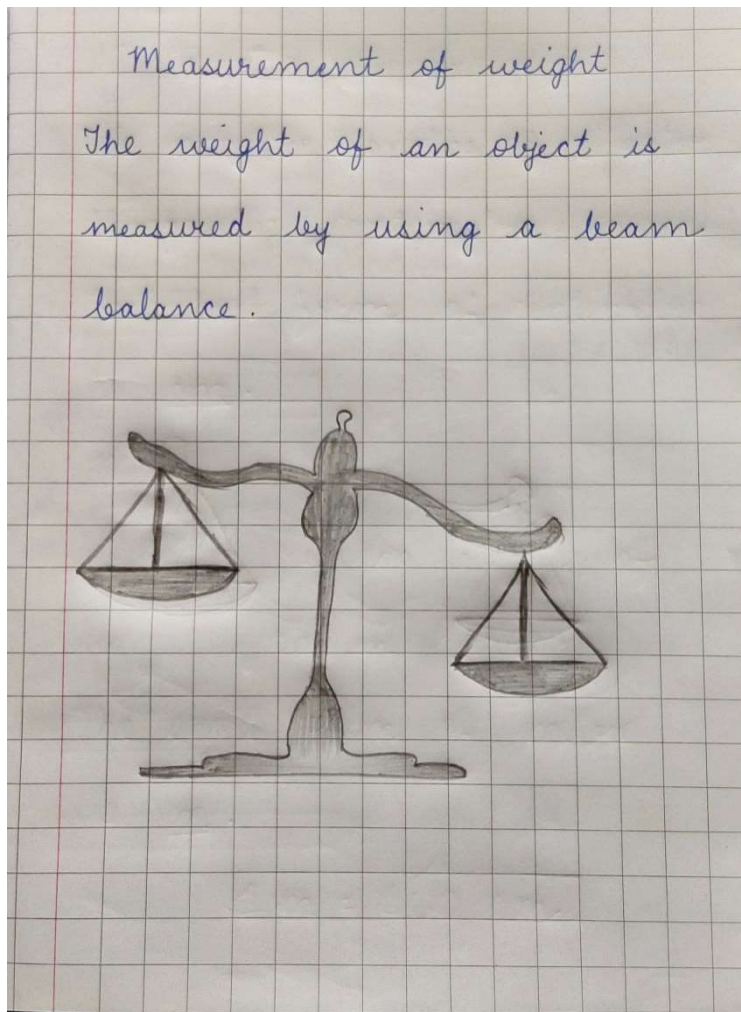 Measurement of weight
The weight of an object is
measured by using a beam
balance.